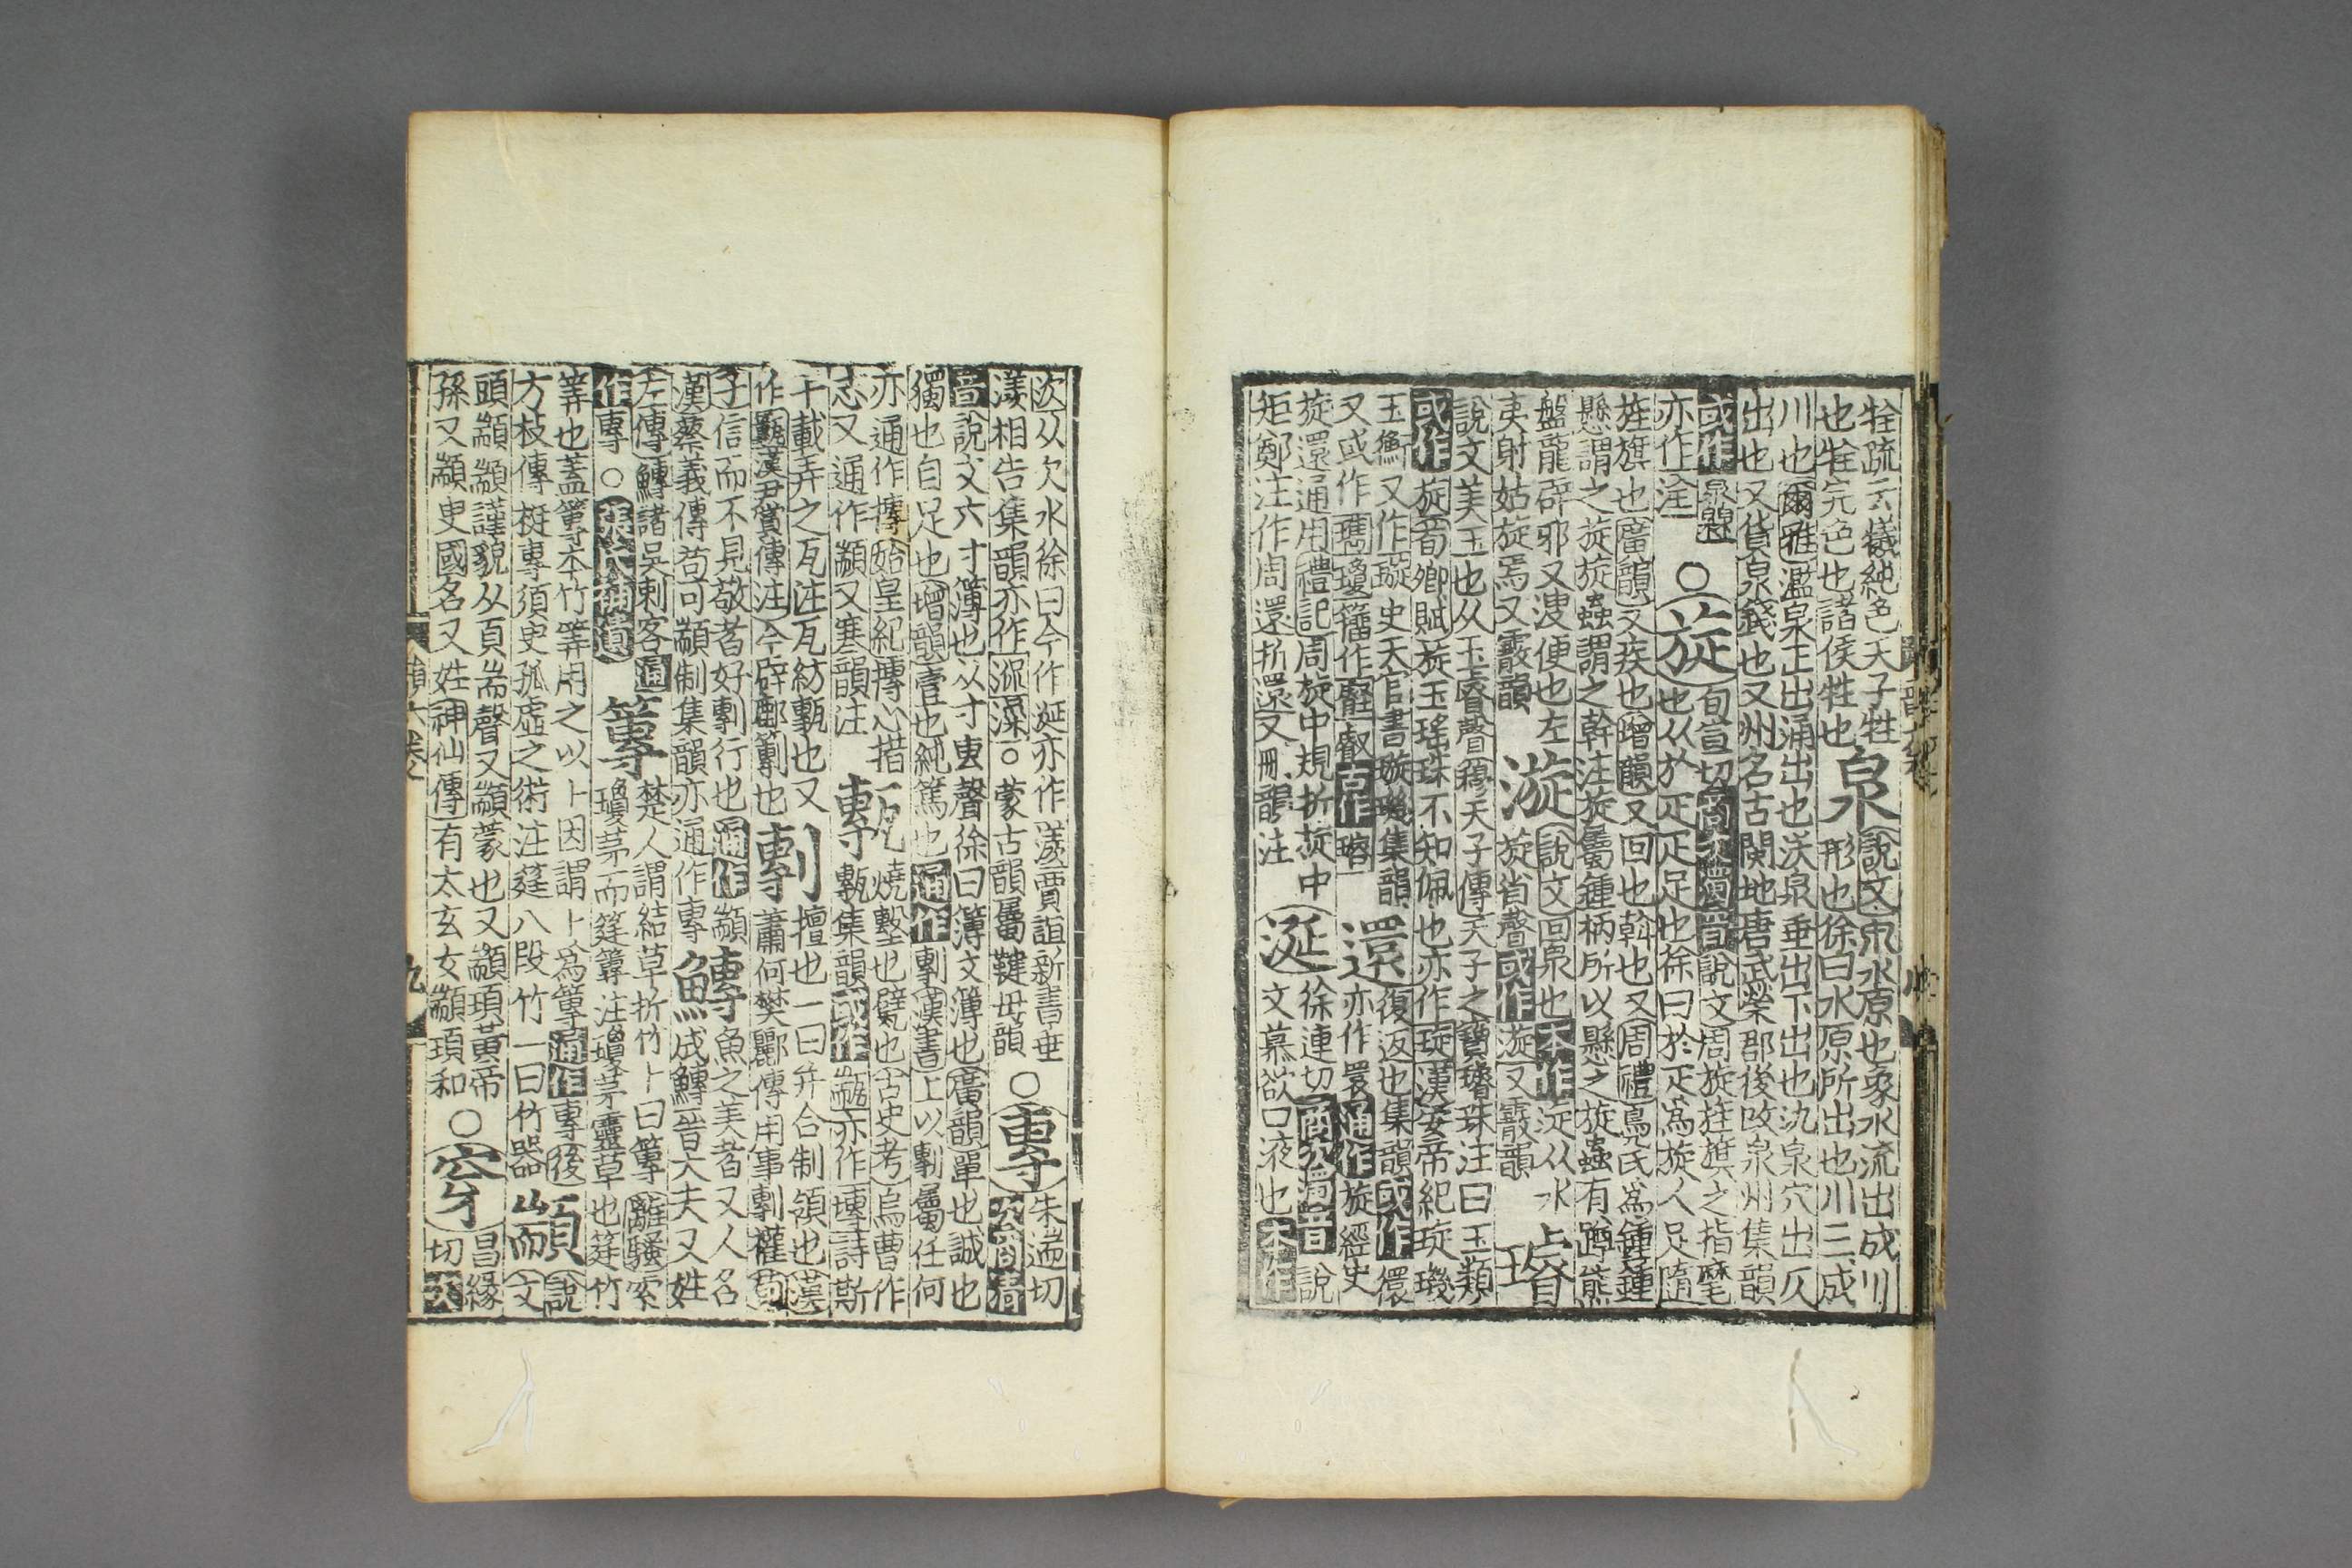 牷疏云犧純色天子牲
也牷完色也諸侯牲也
泉
說文泉水原也象水流出成川
形也徐曰水原所出也川三成
川也爾雅濫泉正出涌出也沃泉垂出下出也氿泉穴出仄
出也又貨泉錢也又州名古閩地唐武榮郡後改泉州集韻
或作
亦作洤
○旋
旬宣切商次濁音說文周旋旌旗之指麾
也从㫃疋疋足也徐曰於疋爲旋人足隨
旌旗也廣韻又疾也增韻又回也斡也又周禮鳧氏爲鍾鍾
懸謂之旋旋蟲謂之幹注旋屬鍾柄所以懸之旋蟲有蹲熊
盤龍辟邪又溲便也左
夷射姑旋焉又霰韻
漩
說文回泉也本作淀从水
旋省聲或作漩又霰韻
璿
說文美玉也从玉睿聲穆天子傳天子之寶璿珠注曰玉類
或作琁荀卿賦琁玉瑤珠不知佩也亦作琁漢安帝紀琁璣
玉衡又作璇史天官書璇璣集韻
又或作㻽瓊籒作叡古作
還
復返也集韻或作儇
亦作睘通作旋經史
旋還通用禮記周旋中規折旋中
矩鄭注作周還折還又冊韻注
涎
徐連切商次濁音說
文慕欲口液也本作
㳄从欠水徐曰今作涎亦作漾賈誼新書垂
漾相告集韻亦作 ○蒙古韻屬鞬母韻
○專
朱遄切次商清
音說文六寸簿也从寸叀聲徐曰簿文簿也廣韻單也誠也
獨也自足也增韻壹也純篤也通作剸漢書上以剸屬任何
亦通作摶始皇紀摶心揖
志又通作顓又寒韻注
甎
燒墼也甓也古史考烏曹作
甎集韻或作 亦作塼詩斯
干載弄之瓦注瓦紡甎也又
作 漢尹賞傳注令辟 也
剸
擅也一曰并合制領也漢
蕭何樊酈傳用事剸權荀
子信而不見敬者好剸行也通作顓
漢蔡義傳苟可顓制集韻亦通作專
鱄
魚之美者又人名
成鱄晉大夫又姓
左傳鱄諸吳刺客通
作專○ 補遺
篿
楚人謂結草折竹卜曰篿離騷索
瓊茅而筳篿注瓊茅靈草也筳竹
筭也蓋篿本竹筭用之以卜因謂卜爲篿通作專後
方枝傳挺專須臾孤虛之術注筳八段竹一曰竹器
顓
說文
頭顓顓謹貌从頁耑聲又顓蒙也又顓頊黃帝
孫又顓臾國名又姓神仙傳有太玄女顓頊和
○穿
昌緣
切次